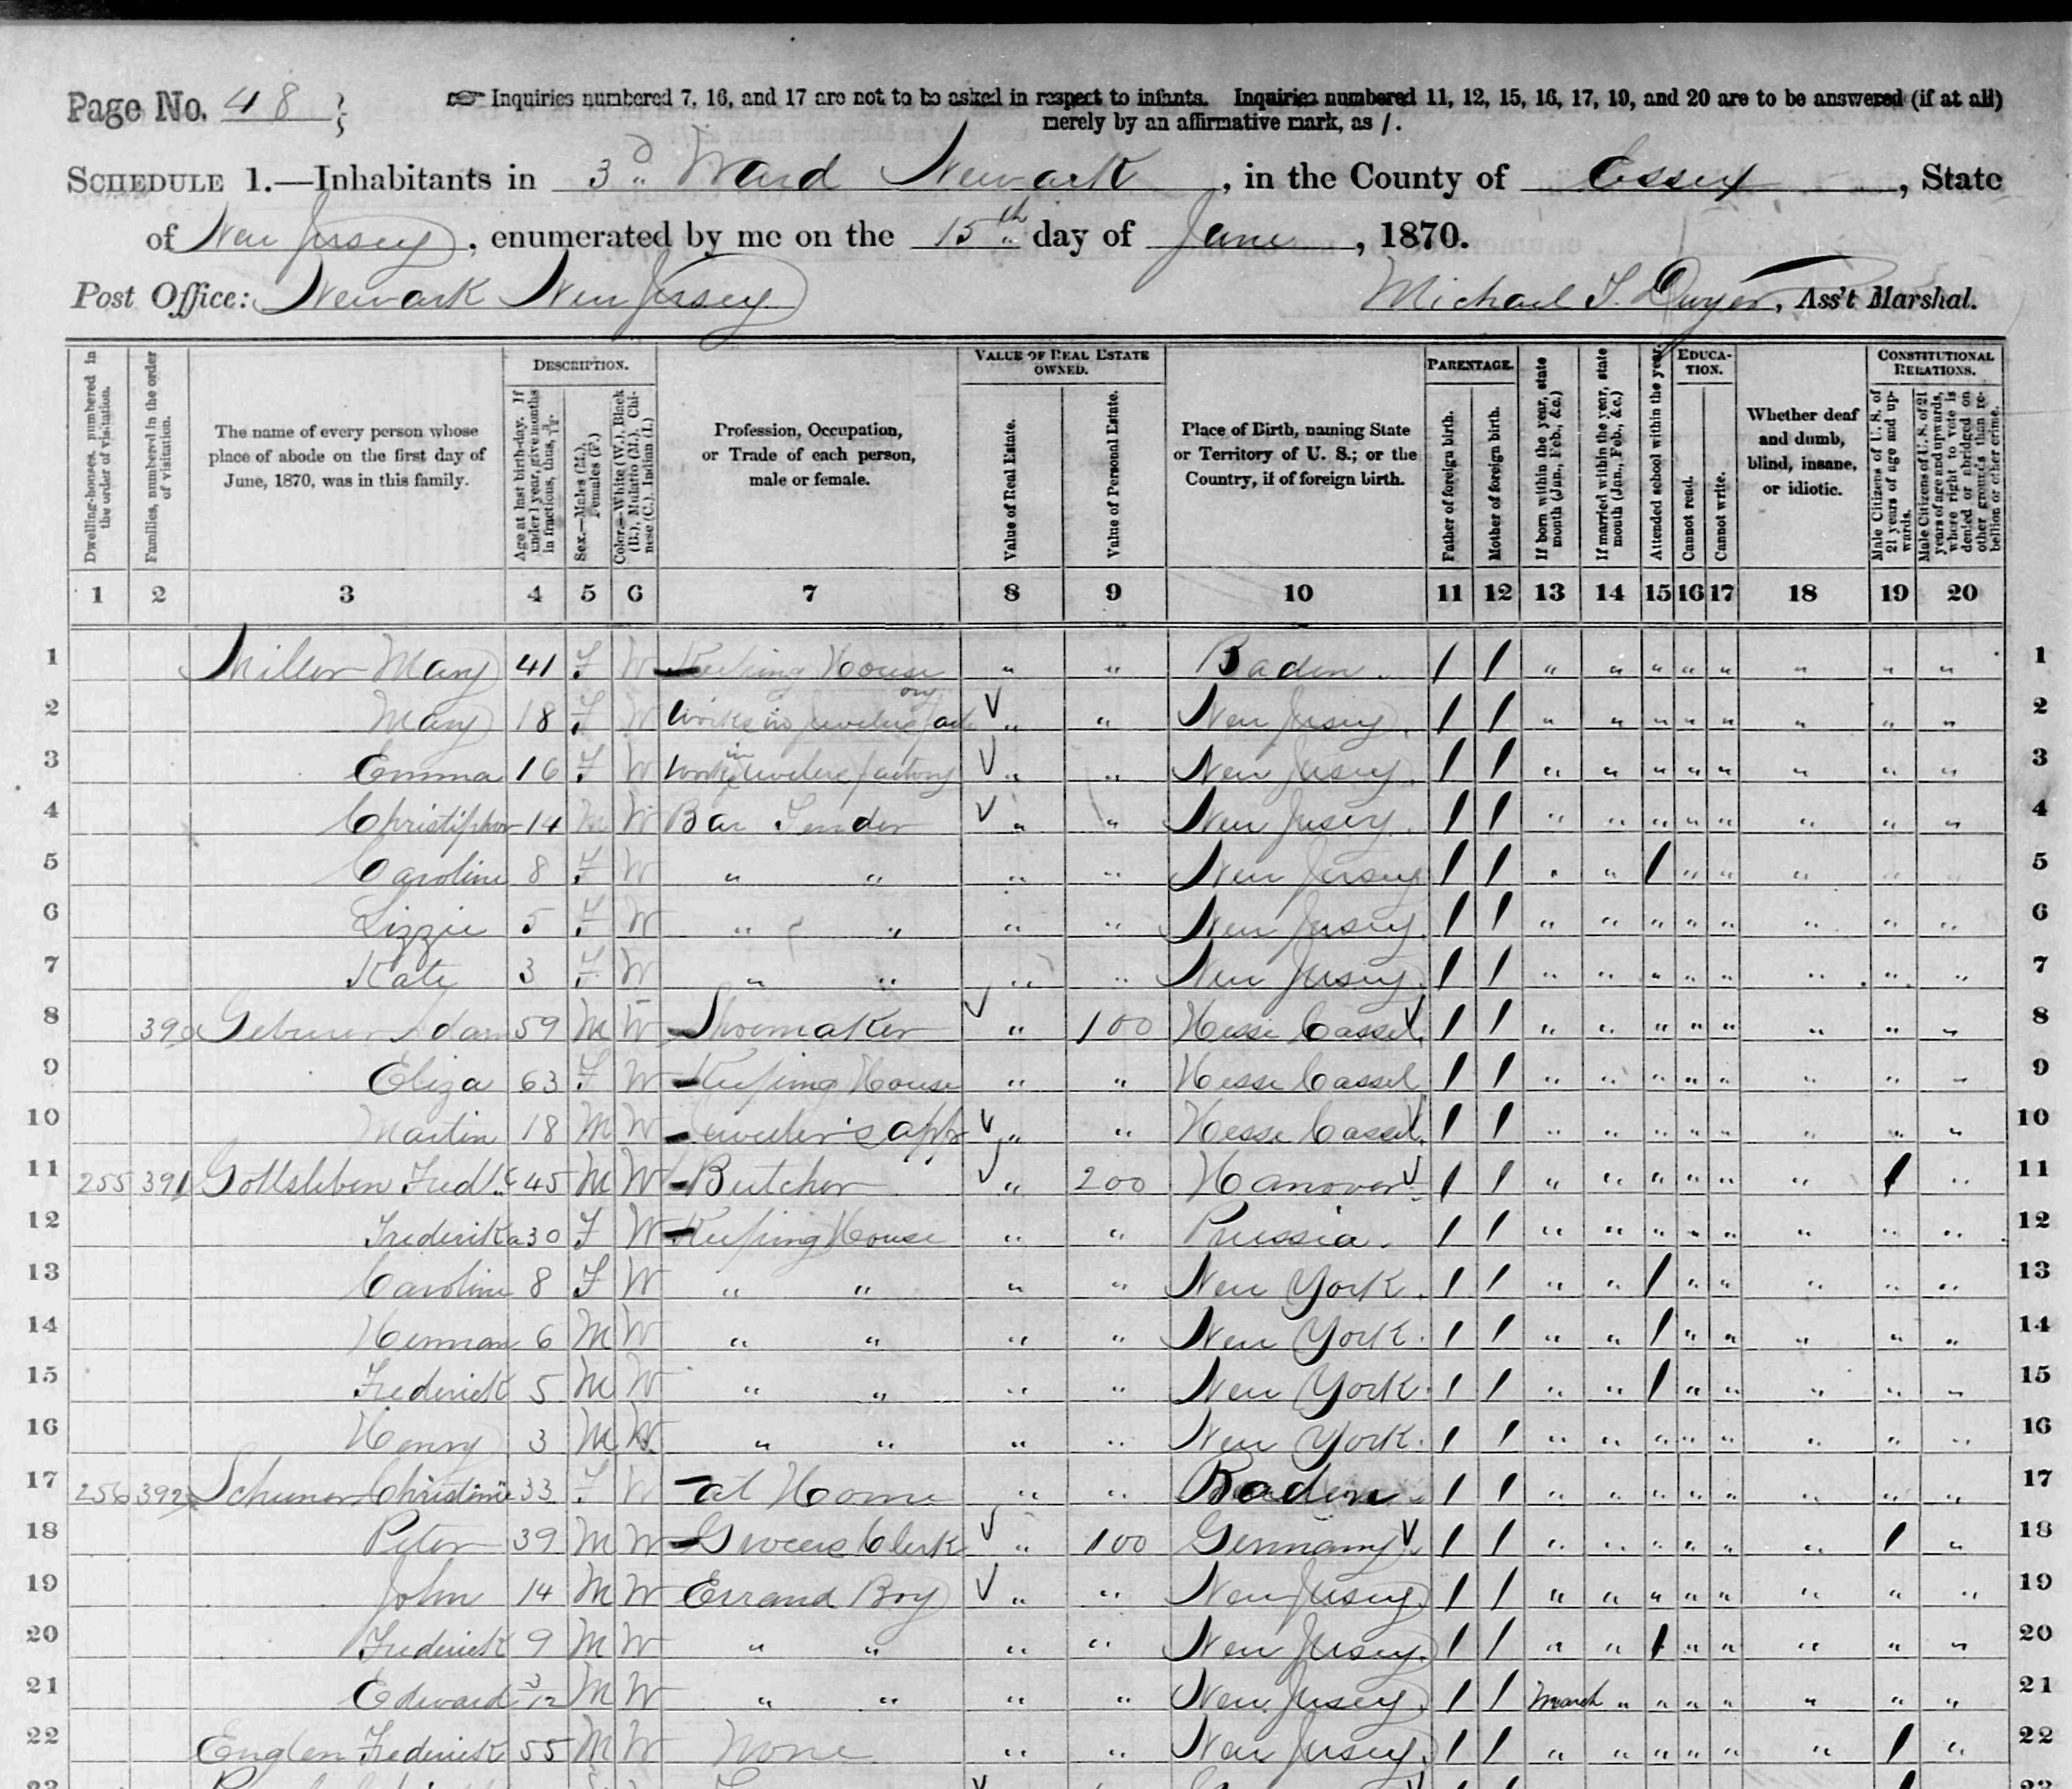 Page No. 48
☞ Inquiries numbered 7, 16, and 17 are not to be asked in respect to infants. Inquiries numbered 11, 12, 15, 16, 17, 19, and 20 are to be answered (if at all)
merely by an affirmative mark, as /.
SCHEDULE 1.—Inhabitants in 3d Ward Newark, in the County of Essex, State
of New Jersey, enumerated by me on the 15th day of June, 1870.
Post Office: Newark New Jersey Michael J. Dwyer, Ass't Marshal.
Dwelling-houses, numbered in the order of visitation.
Families, numbered in the order of visitation.
The name of every person whose place of abode on the first day of June, 1870, was in this family.
DESCRIPTION.
Age at last birth-day. If under 1 year, give months in fractions, thus, 3/12.
Sex.—Males (M.), Females (F.)
Color.—White (W.), Black (B.), Mulatto (M.), Chinese (C.), Indian (I.)
Profession, Occupation, or Trade of each person, male or female.
VALUE OF REAL ESTATE OWNED.
Value of Real Estate.
Value of Personal Estate.
Place of Birth, naming State or Territory of U. S.; or the Country, if of foreign birth.
PARENTAGE.
Father of foreign birth.
Mother of foreign birth.
If born within the year, state month (Jan., Feb., &c.)
If married within the year, state month (Jan., Feb., &c.)
Attended school within the year.
EDUCATION.
Cannot read.
Cannot write.
Whether deaf and dumb, blind, insane, or idiotic.
CONSTITUTIONAL RELATIONS.
Male Citizens of U. S. of 21 years of age and upwards.
Male Citizens of U. S. of 21 years of age and upwards, where right to vote is denied or abridged on other grounds than rebellion or other crime.
1 2 3 4 5 6 7 8 9 10 11 12 13 14 15 16 17 18 19 20
1 Miller Mary 41 F W Keeping House " " Baden / / " " " " " " " " 1
2 Mary 18 F W Works in Jewelery factory " " New Jersey / / " " " " " " " " 2
3 Emma 16 F W Works in Jewelery factory " " New Jersey / / " " " " " " " " 3
4 Christipher 14 M W Bar Tender " " New Jersey / / " " " " " " " " 4
5 Caroline 8 F W " " " " New Jersey / / " " / " " " 5
6 Lizzie 5 F W " " " " New Jersey / / " " " " " " " " 6
7 Kate 3 F W " " " " New Jersey / / " " " " " " " " 7
8 390 Adam 59 M W Shoemaker " 100 Hesse Cassel / / " " " " " " " " 8
9 Eliza 63 F W Keeping House " " Hesse Cassel / / " " " " " " " " 9
10 Martin 18 M W Jeweler's appr " " Hesse Cassel / / " " " " " " " " 10
11 255 391 Gottsleben Fred'k 45 M W Butcher " 200 Hanover / / " " " " " " / " 11
12 Frederika 30 F W Keeping House " " Prussia / / " " " " " " " " 12
13 Caroline 8 F W " " " " New York / / " " / " " " " " 13
14 Herman 6 M W " " " " New York / / " " / " " " " " 14
15 Frederick 5 M W " " " " New York / / " " / " " " " " 15
16 Henry 3 M W " " " " New York / / " " " " " " " " 16
17 256 392 Christinie 33 F W at Home " " Baden / / " " " " " " " " 17
18 Peter 39 M W Grocers Clerk " 100 Germany / / " " " " " " / " 18
19 John 14 M W Errand Boy " " New Jersey / / " " " " " " " " 19
20 Frederick 9 M W " " " " New Jersey / / " " / " " " " " 20
21 Edward 3/12 M W " " " " New Jersey / / March " " " " " " " 21
22 Englen Frederick 55 M W None " " New Jersey / / " " " " " " / " 22